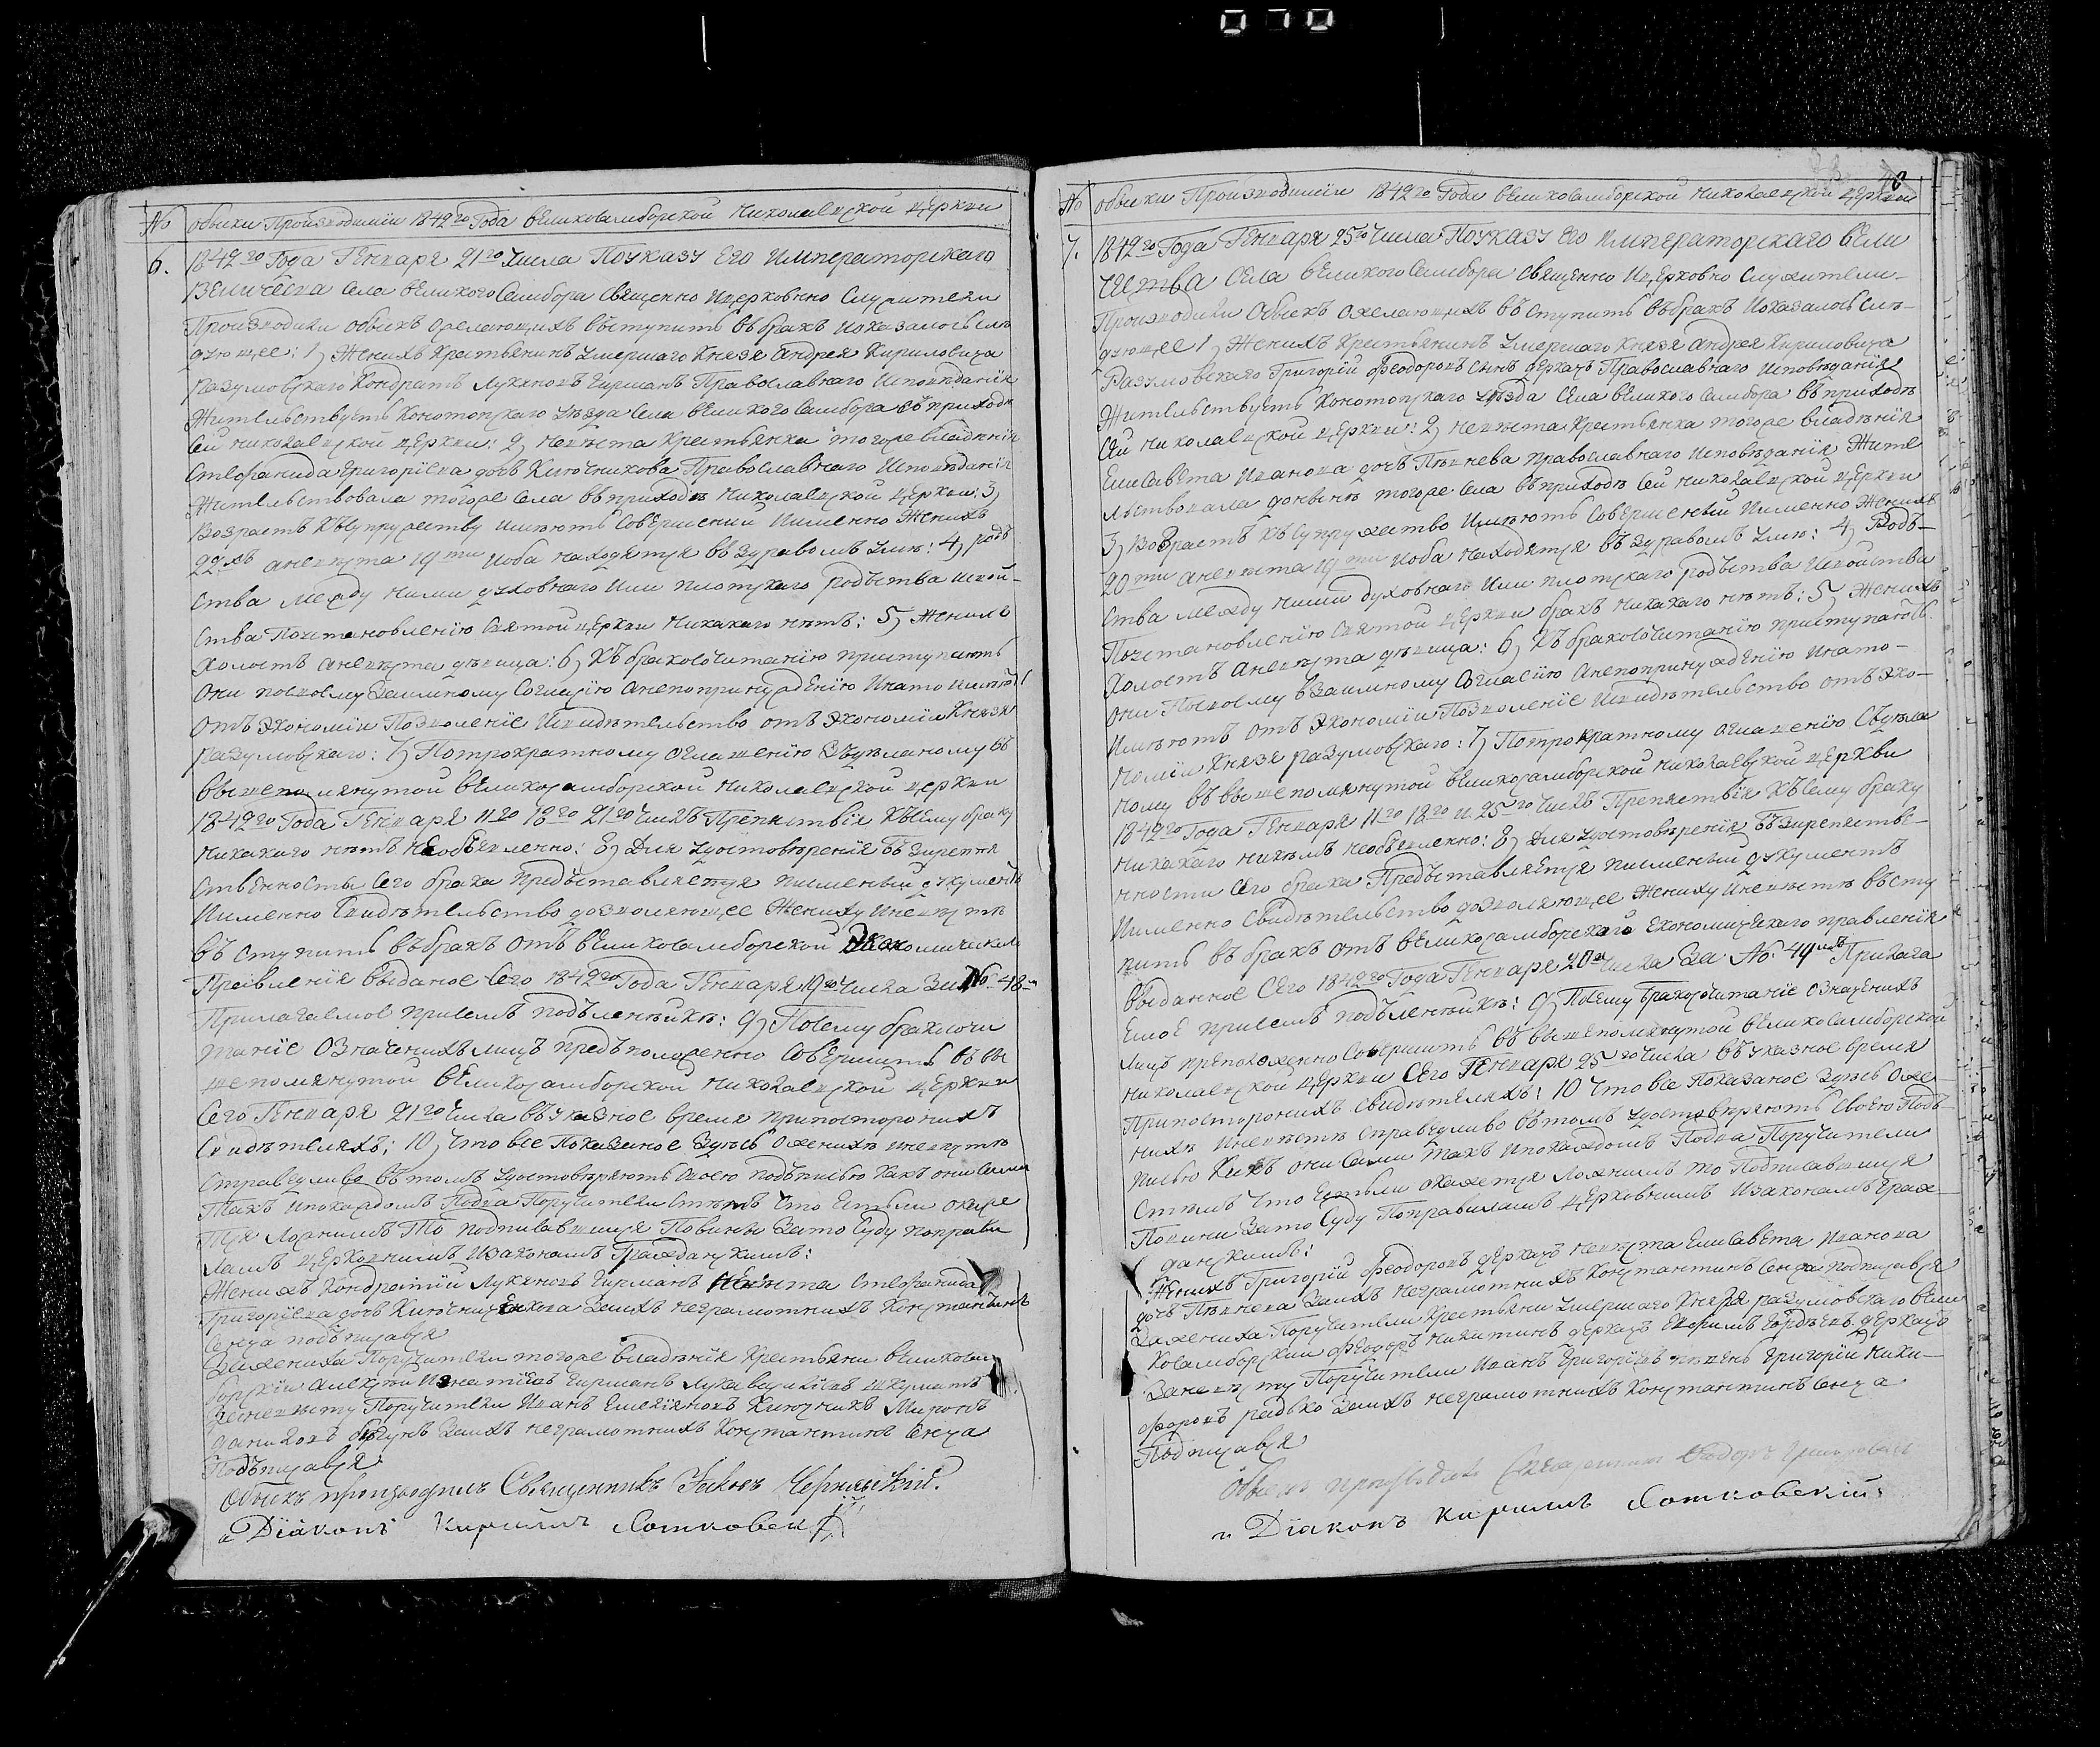 070
№ обыски Произходимїи 1842го Года великосамборской Николаевской церкви
6. 1842го Года Генваря 21го Числа Поуказу Его Императорскаго
Величества села великого Самбора священно Ицерковно Служители
Производили обыскъ ожелающихъ въступить въбракъ Иоказалось слѣ
дующее: 1, Женихъ Крестьянинъ Умершаго Князя Андрея Кириловича
Разумовскаго Кондратъ Лукиновъ Гирманъ Православнаго Исповѣданїя
Жительствуетъ Конотопскаго уѣзда Села великого Самбора въприходѣ
Сей николаевской церкви: 2, невѣста Крестьянка тогоже владѣнїя
Стефанида Григорїева дочь Ключникова Православнаго Исповѣданїя
Жительствовала тогоже села въприходѣ николаевской церкви: 3,
Возрастъ къСупружеству имѣютъ Совершений Иименно Женихъ
22хъ аневѣста 19ти иоба находятся въздравомъ умѣ: 4, родъ
ства между ними духовнаго Или плотскаго родъства исвой-
ства Поустановленїю Святой церкви Никакаго нѣтъ: 5, Женихъ
Холостъ аневѣста дѣвица: 6, Къбракосочитанїю приступаютъ
они посвоему взаимному Согласїю анепопринужденїю Инато имѣютъ
отъ Экономїи Позволенїе Исвидѣтельство отъ Экономїи Князя
разумовскаго: 7, Потрократному оглашенїю Зъдѣланому въ
вышепомянутой великосамборской николаевской церкви
1842го Года Генваря 11го 18го 21го Числъ Препятствїя къСему браку
никакаго нѣтъ необъявленно: 8, Для удостовѣренїя безпрепят
ственносты Сего брака Предъставляется писменый документъ
Иименно Свидѣтельство дозволяющее Жениху Иневѣстѣ
въступить въбракъ отъ великосамборской Экономическаго
Правленїя выданое Сего 1842го Года Генваря 19го Числа За № 48м
Прилагаемое присемъ подълѣникъ: 9, Посему бракосочи
танїе означенихълицъ предъположенно Совершить въвы
шепомянутой великосамборской николаевской церкви
Сего Генваря 21го Числа въуказное время припосторонихъ
Свидѣтеляхъ: 10, Что все Показаное Здѣсь оженихѣ иневѣстѣ
справедливо вътомъ удостовѣряютъ своею подъписью какъ онисами
такъ Ипокаждомъ Подва Поручители Стѣмъ Что Естьли окаже
тся ложнимъ То подписавшися Повины Зато Суду поправи
ламъ церковнимъ Изаконамъ Гражданскимъ:
Женихъ Кондратїй Лукиновъ Гирманъ Невѣста Стефанида
Григорїева дочь Ключникова Заихъ неграмотнихъ Константинъ
Сенча подъписался
Заженихъ Поручители тогоже владѣнїя Крестьяни великосам
борскїи Алексѣй Игнатїевъ Гирманъ Лука
Заневѣсту Поручители Иванъ Емелїяновъ Ключникъ Миронъ
Даниловъ Заихъ неграмотнихъ Константинъ Сенча
Подъписался
Обыскъ производилъ Священникъ Яковъ Чернявскїй.
и Дїаконъ Кириллъ Котковскїй
№ обыски Произходимїи 1842го Года великосамборской николаевской церкви
7. 1842го Года Генваря 25го Числа Поуказу Его Императорскаго вели
чества Села великого Самбора священно Ицерковно Служители
Производили Обыскъ ожелающихъ въступить въбракъ Иоказалось слѣ-
дующее 1, Женихъ Крестьянинъ Умершаго Князя Андрея Кириловича
Разумовскаго Григорїй Феодоровъ сынъ деркачъ Православнаго Исповѣданїя
Жительствуетъ Конотопскаго уѣзда Села великого Самбора въприходѣ
Сей николаевской церкви: 2, невѣста Крестьянка тогоже владѣнїя
Елисавета Иванова дочь Пѣвнева Православнаго Исповѣданїя Жите
льствовала донынѣ тогоже Села въприходѣ Сей николаевской церкви
3, Возрастъ къСупружество Имѣютъ Совершеный Иименно Женихъ
20ти аневѣста 19ти иоба находятся въздравомъ умѣ: 4, Родъ-
ства между ними духовнаго Или плотскаго родъства Исвойства
Поустановленїю Святой церкви бракъ никакаго нѣтъ: 5, Женихъ
Холостъ аневѣста дѣвица: 6, Къбракосочитанїю приступаютъ
они Посвоему взаимному Согласїю Анепопринужденїю Инато-
Имѣютъ отъ Экономїи Позволенїе Исвидѣтельство отъ Эко-
номїи Князя разумовскаго: 7, Потрократному оглашенїю Съдѣла
ному въвышепомянутой великосамборской николаевской церкви
1842го Года Генваря 11го 18го и 25го числъ Препятствїя къСему браку
никакаго никѣмъ необъявленно: 8, Для удостовѣренїя безпрепятстве-
нности Сего брака Предъставляется писменый документъ
Иименно Свидѣтельство дозволяющее Жениху Иневѣстѣ въсту
пить въбракъ отъ великосамборскаго Економическаго правленїя
выданное Сего 1842го Года Генваря 20го Числа За №. 49мъ Прилага
емое присемъ подълѣникъ: 9, Посему бракосочитанїе означенихъ
лицъ преположенно Совершить въвышепомянутой великосамборской
николаевской церкви Сего Генваря 25го Числа въуказное время
Припосторонихъ свидѣтеляхъ: 10 Что все Показаное Здѣсь оже-
нихѣ Иневѣстѣ справедливо вътомъ удостовѣряютъ Своею Подъ-
писью Какъ они Сами Такъ Ипокаждомъ Подва Поручители
Стѣмъ Что Естьли окажется ложнимъ то Подписавшися
Повини Зато Суду Поправиламъ церковнимъ Изаконамъ Граж-
данскимъ:
Женихъ Григорїй Феодоровъ деркачъ невѣста Елисавета Иванова
дочь Пѣвнева Заихъ неграмотнихъ Константинъ Сенча подписался
Зажениха Поручители Крестьяни Умершаго Князя разумовскаго вели
косамборскїи Феодоръ Никитинъ деркачъ деркачъ
Заневѣсту Поручители Иванъ Григорїевъ пѣвень Григорїй Ники-
форовъ радько Заихъ неграмотнихъ Константинъ Сенча
Подписался
Обыскъ производилъ Священникъ
и Дїаконъ Кириллъ Котковскїй